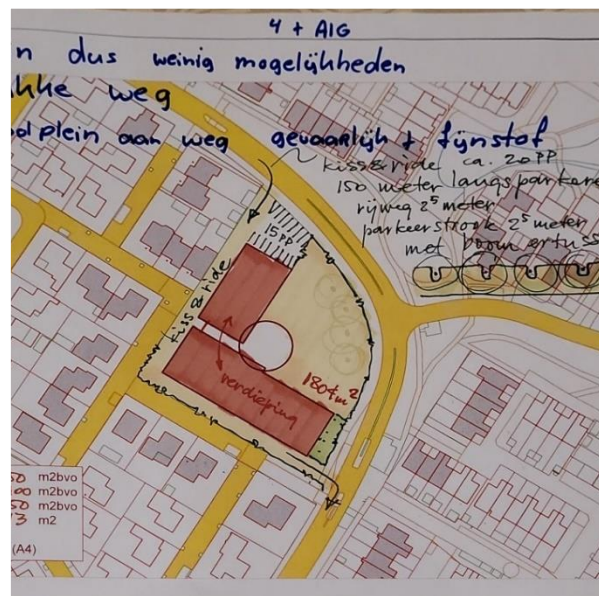 4 + AIG
n dus weinig mogelijkheden
kke weg
plein aan weg gevaarlijk + fijnstof
kiss&ride ca. 20 PP
150 meter langsparkere
rijweg 2⁵ meter
parkeerstrook 2⁵ meter
met boom ertuss
15 PP
kiss & ride
verdieping
1804 m²
50 m2bvo
00 m2bvo
50 m2bvo
3 m2
(A4)